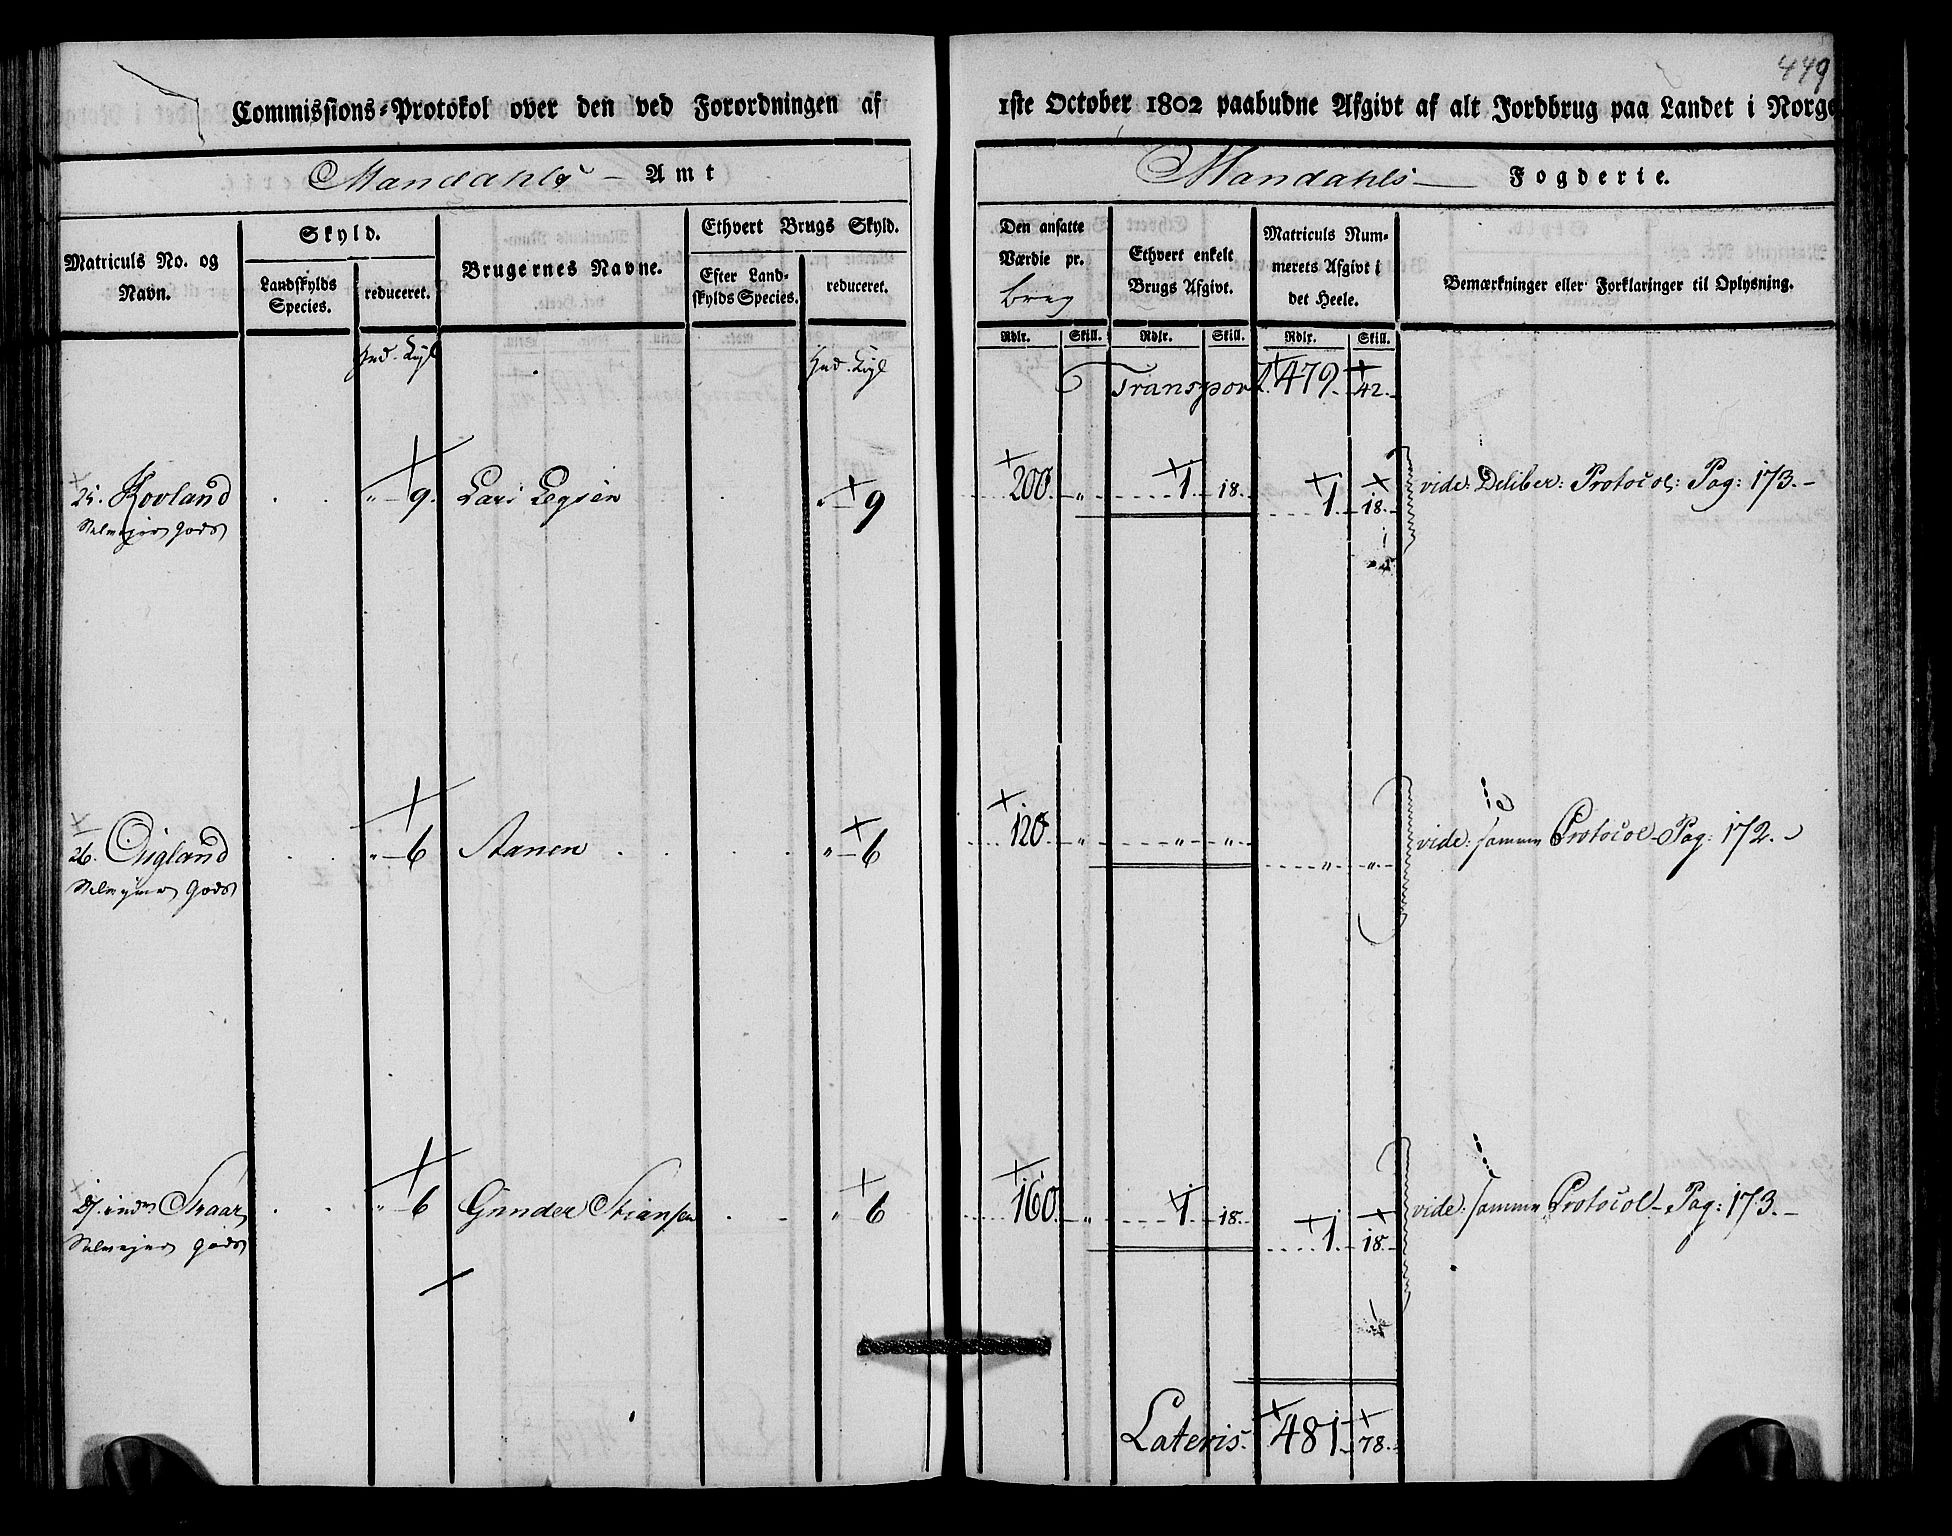 449
Commissions-Protokol over den ved Forordningen af 1ste October 1802 paabudne Afgivt af alt Jordbrug paa Landet i Norge
Mandahls Amt
Mandahls Fogderie.
Matriculs No. og Navn.
Skyld.
Landskylds Species.
reduceret.
Brugernes Navne.
Ethvert Brugs Skyld.
Efter Landskylds Species.
reduceret.
Den ansatte Værdie pr. brug
Ethvert enkelt Brugs Afgivt.
Matriculs Nummerets Afgivt i det Heele.
Bemærkninger eller Forklaringer til Oplysning.
Rdlr. Skill. Rdlr. Skill. Rdlr. Skill.
Transport 479. 42.
25. Kovland " 9. Lars " 9 200 " 1 18. 1 18. vide: Deliber: Protocol: Pag: 173.
Gods
26. " 6 Aanen " 6 120 " " " " " vide: samme Protocol Pag: 172.
Gods
27. indr Straar " 6 Gunder Stiansen " 6 160 " 1 18. 1 18. vide: samme Protocol Pag: 173.
Gods
Lateris 481 78.